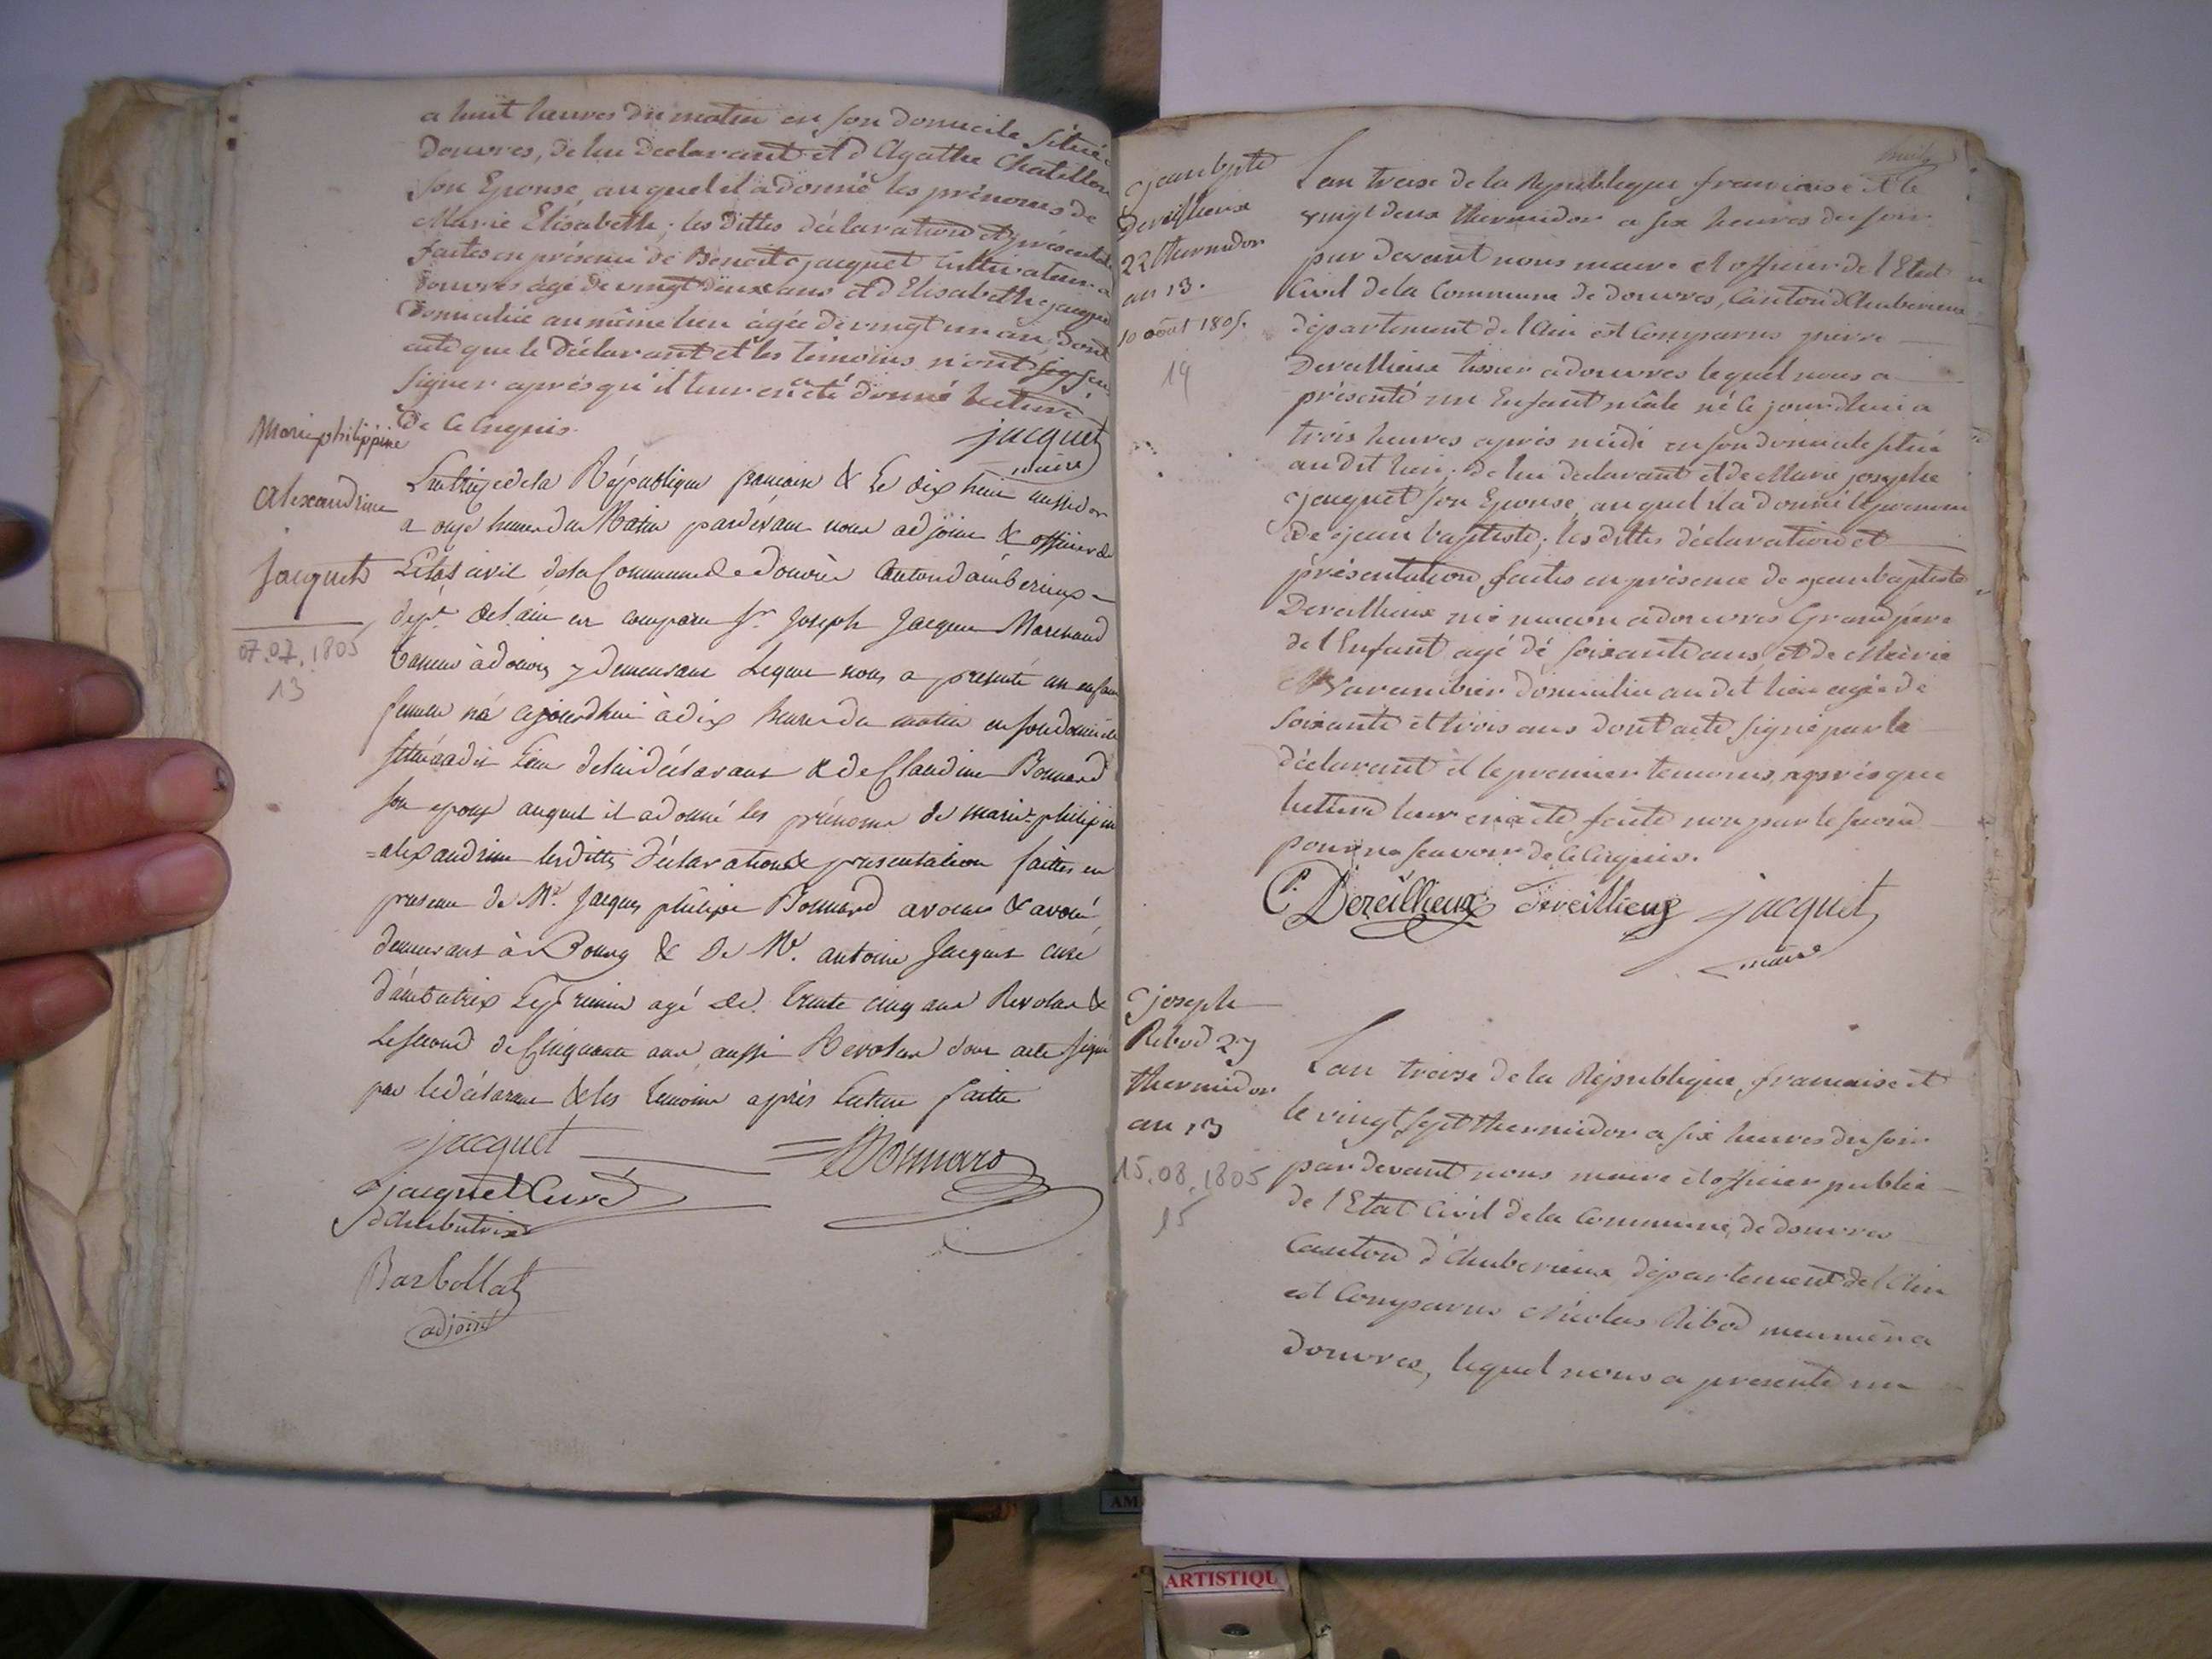 a huit heures du matin en son domicile situé a
Douvres, de lui declarant et d'Agathe Chatillon
son Epouse, auquel il a donné les prénoms de
Marie Elisabeth; les dittes déclaration et présentation
faites en présence de Benoit jacquet Cultivateur a
Douvres âgé de vingt deux ans et d'Elisabeth jacquet
Domiciliée au même lieu âgée de vingt un an, dont
acte que le déclarant et les témoins n'ont sçu
signer après qu'il leur en a été donné lecture
de ce enquis.
jacquet
maire
Marie philippine
alexandrine
Jacquet
07.07.1805
13
L'an treize de la République francaise & Le dix huit messidor
a onze heures du Matin pardevant nous adjoint & officier de
L'état civil de la Commune de douvres Canton d'amberieux
dept. de l'ain est comparu Sr. Joseph Jacquet Marchand
Taneur à douvres y demeurant Lequel nous a presenté un enfant
femelle né aujourdhui à dix heures du matin en son domicile
situé audit Lieu de lui déclarant & de Claudine Bonnard
son epouse auquel il a donné les prénoms de marie-philipine
=alexandrine lesdittes déclaration & presentation faittes en
presence de Mr. Jacques philipe Bonnard avocat & avoué
demeurant à Bourg & de Mr. antoine Jacquet curé
d'ambutrix Le premier agé de trente cinq ans Revolus &
Le second de Cinquante ans aussi Revolus dont acte signé
par le déclarant & les temoins après Lecture faitte
jacquet
Bonnard
jacquet Curé
d'Ambutrix
Barbollat
adjoint
jean bpte
Dereilheux
22 thermidor
an 13.
10 août 1805.
14
L'an treise de la République francaise et le
vingt deux thermidor a six heures du soir
par devant nous maire et officier de l'Etat
Civil de la Commune de Douvres, Canton d'Amberieux
département de l'Ain est Comparus pierre
Dereilheux tissier a douvres lequel nous a
présenté un Enfant mâle né ce jourdhui a
trois heures après midi en son domicile situé
au dit lieu; de lui déclarant et de Marie josephe
jacquet son Epouse, auquel il a donné le prénom
de jean baptiste; les dittes déclaration et
présentation faites en présence de jean baptiste
Dereilheux maçon a douvres Grand père
de l'Enfant agé dé soixante ans, et de Marie
Varambier domiciliée au dit lieu agée de
soixante et trois ans dont acte signé par le
déclarant et le premier temoins, après que
lecture leur en a été faite non par le second
pour ne sçavoir de ce enquis.
P. Déreilheux
Dereillieux
jacquet
maire
joseph
Ribod 27
thermidor
an 13
15.08.1805
15
L'an treize de la République francaise et
le vingt sept thermidor a six heures du soir
par devant nous maire et officier public
de l'Etat Civil de la Commune, de douvres
Canton d'Amberieux département de l'Ain
est Comparus Nicolas Ribod meunier a
Douvres, lequel nous a presenté un
ARTISTIQU